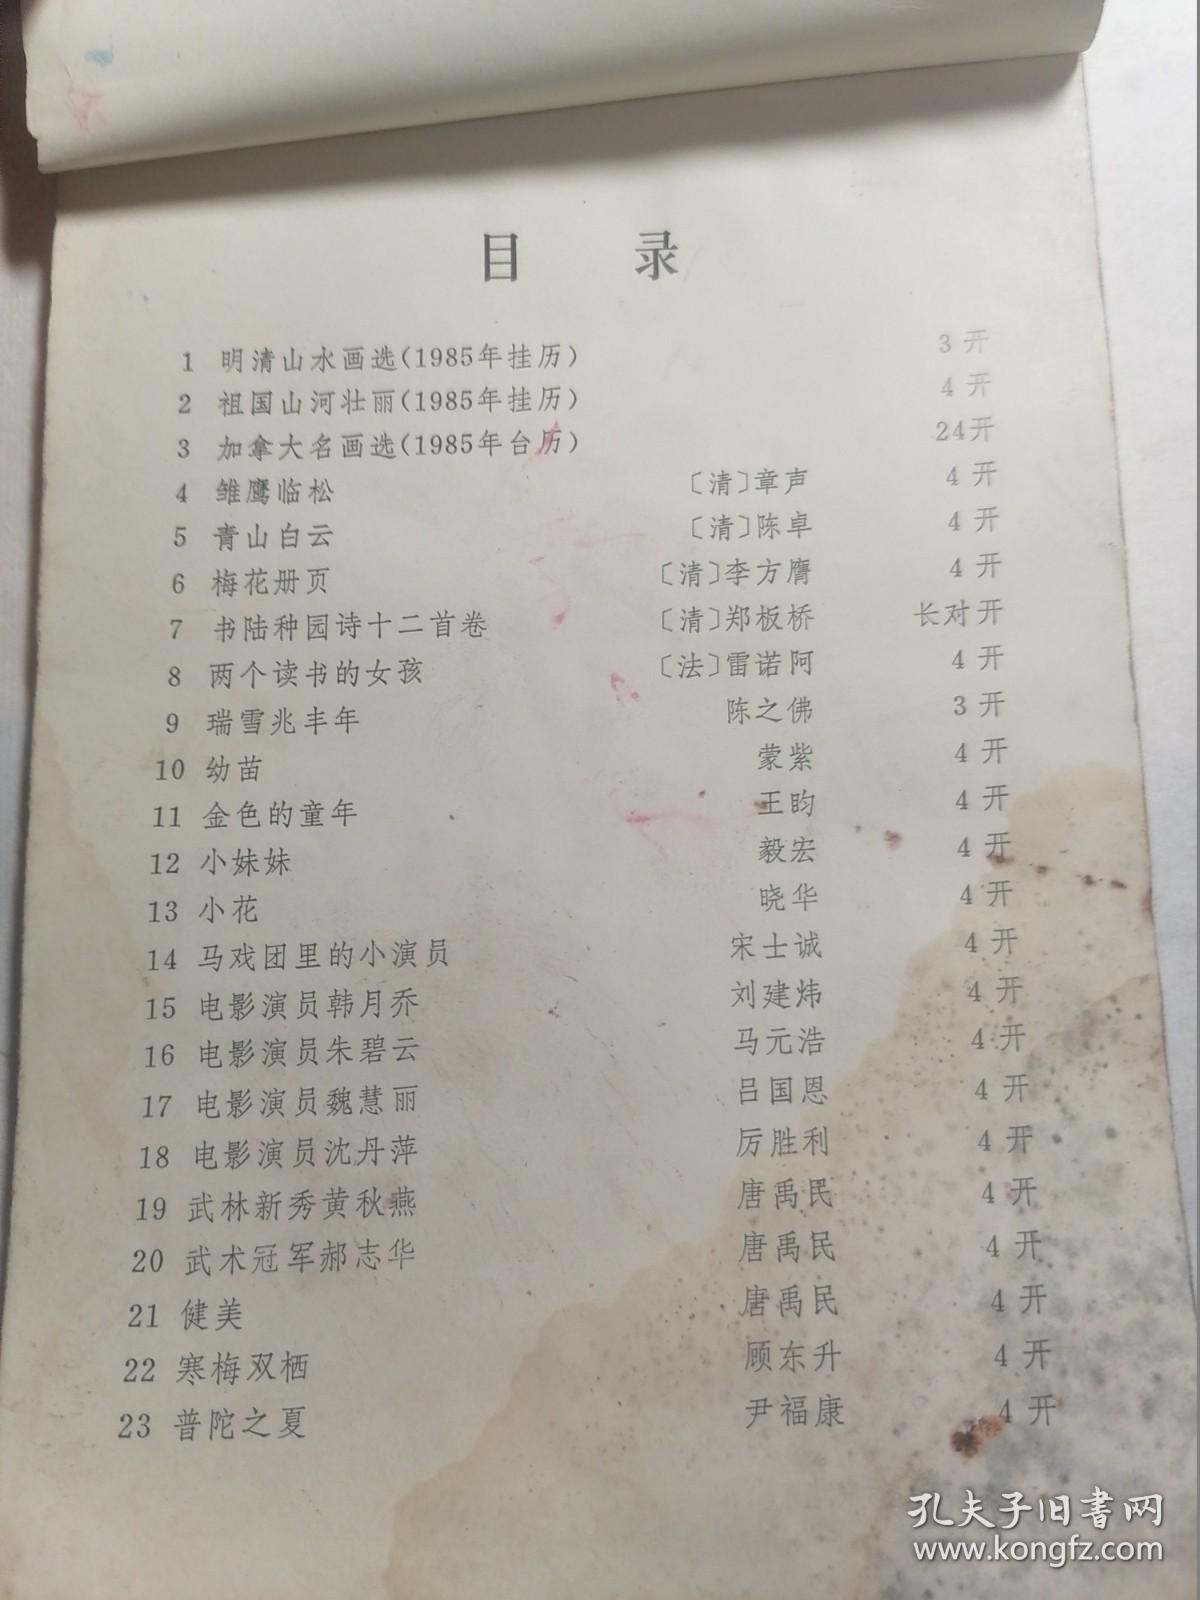 目 录
1 明清山水画选(1985年挂历) 3开
2 祖国山河壮丽(1985年挂历) 4开
3 加拿大名画选(1985年台历) 24开
4 雏鹰临松 〔清〕章声 4开
5 青山白云 〔清〕陈卓 4开
6 梅花册页 〔清〕李方膺 4开
7 书陆种园诗十二首卷 〔清〕郑板桥 长对开
8 两个读书的女孩 〔法〕雷诺阿 4开
9 瑞雪兆丰年 陈之佛 3开
10 幼苗 蒙紫 4开
11 金色的童年 王昀 4开
12 小妹妹 毅宏 4开
13 小花 晓华 4开
14 马戏团里的小演员 宋士诚 4开
15 电影演员韩月乔 刘建炜 4开
16 电影演员朱碧云 马元浩 4开
17 电影演员魏慧丽 吕国恩 4开
18 电影演员沈丹萍 厉胜利 4开
19 武林新秀黄秋燕 唐禹民 4开
20 武术冠军郝志华 唐禹民 4开
21 健美 唐禹民 4开
22 寒梅双栖 顾东升 4开
23 普陀之夏 尹福康 4开
孔夫子旧书网
www.kongfz.com